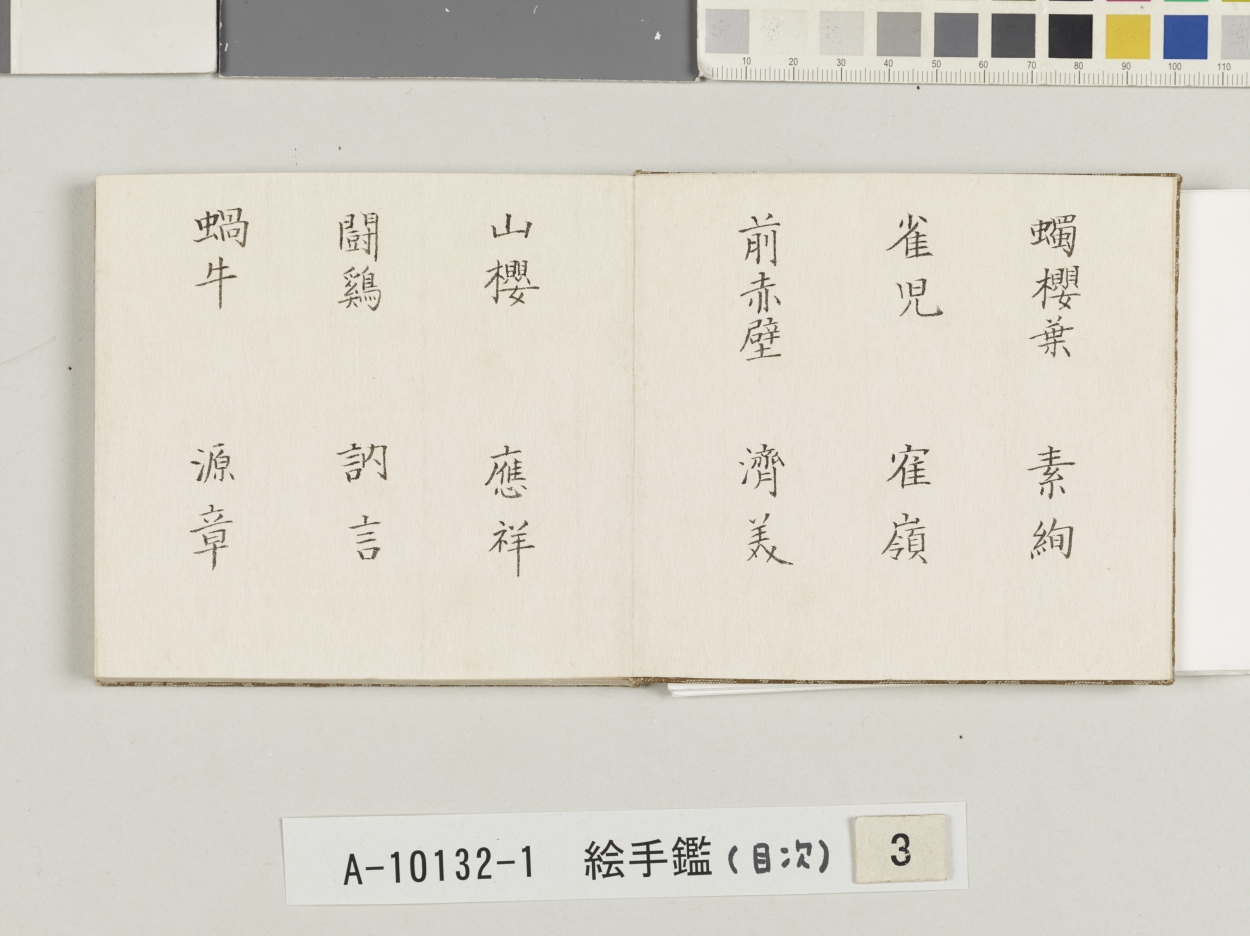 10 20 30 40 50 60 70 80 90 100 110
蠋櫻葉 素絢
雀児 寉嶺
前赤壁 濟美
山櫻 應祥
闘鷄 訥言
蝸牛 源章
A-10132-1 絵手鑑(目次) 3